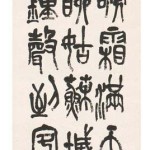 啼霜滿天
眠姑蘇城
鐘聲到客